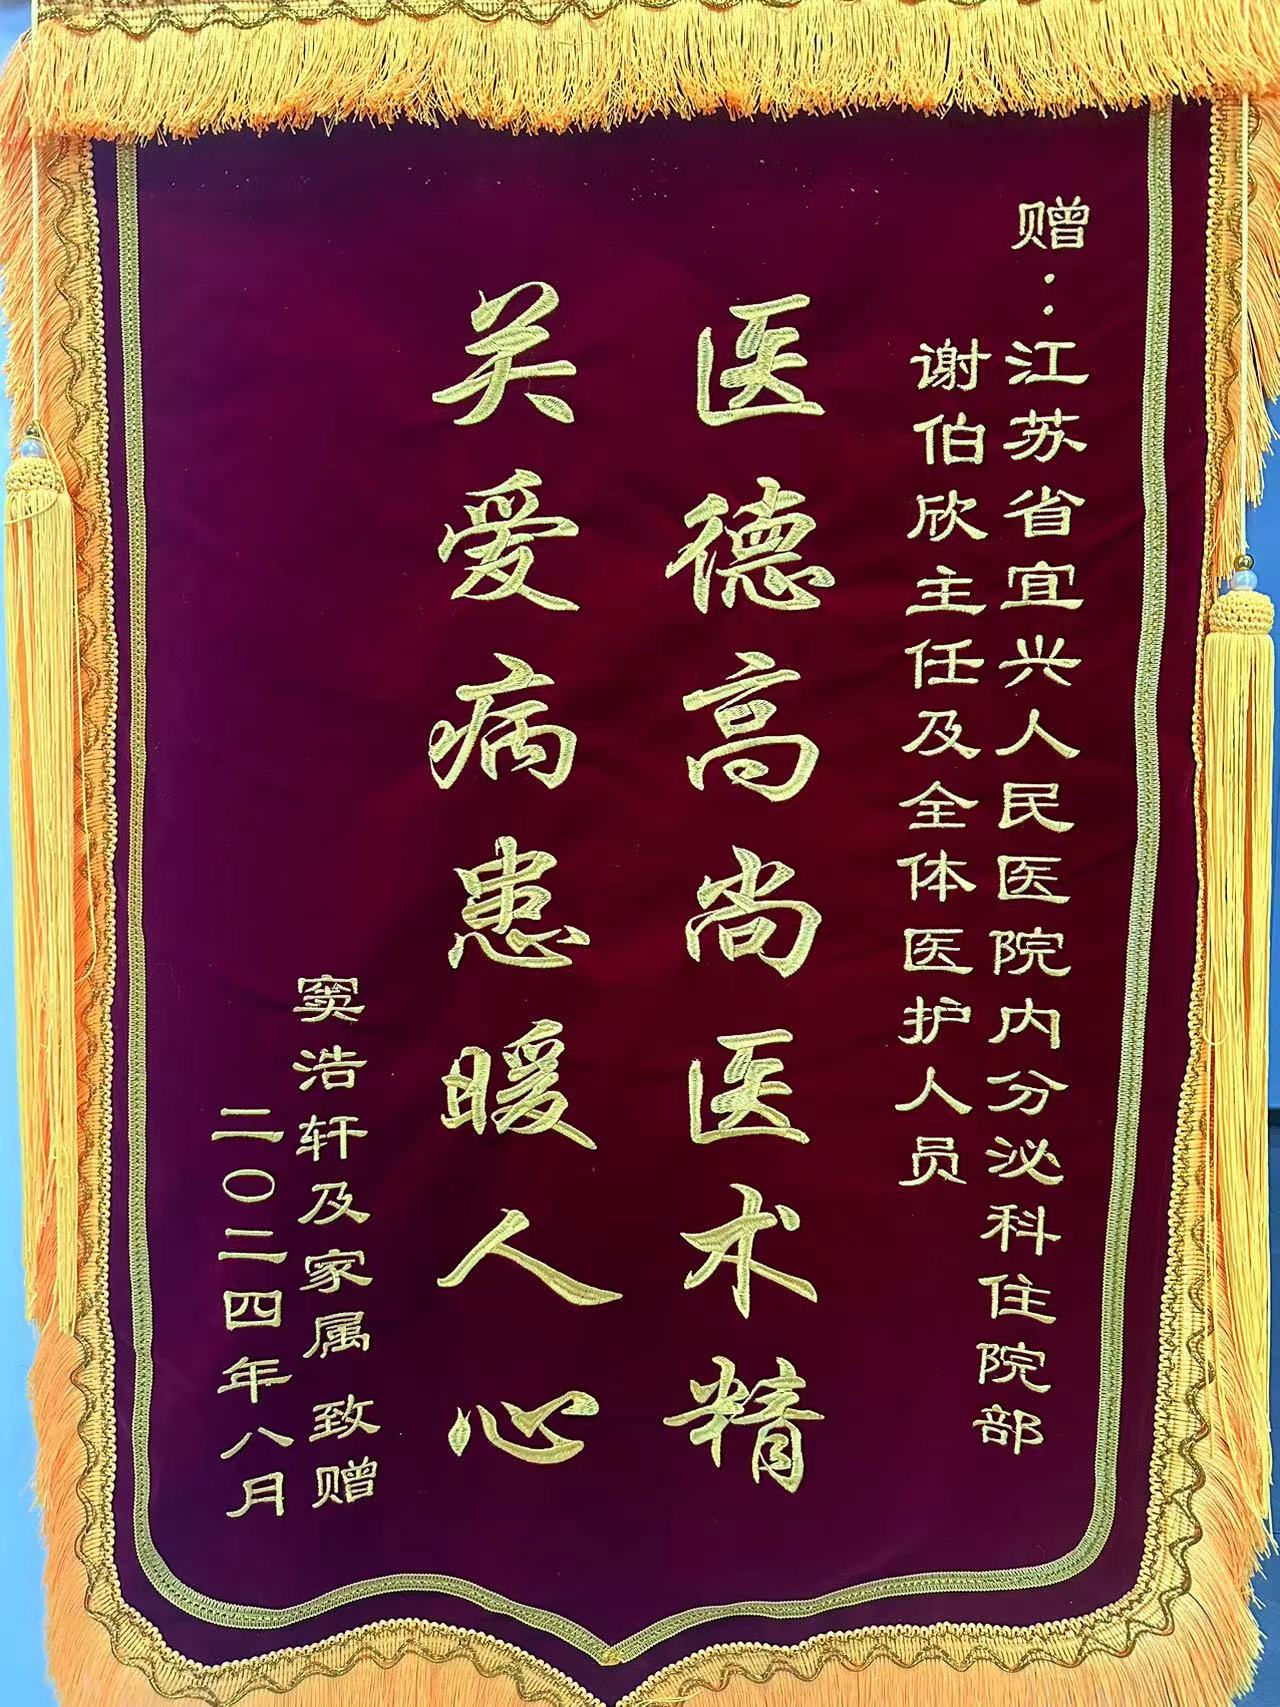 赠：江苏省宜兴人民医院内分泌科住院部
谢伯欣主任及全体医护人员
医德高尚医术精
关爱病患暖人心
窦浩轩及家属 致赠
二〇二四年八月